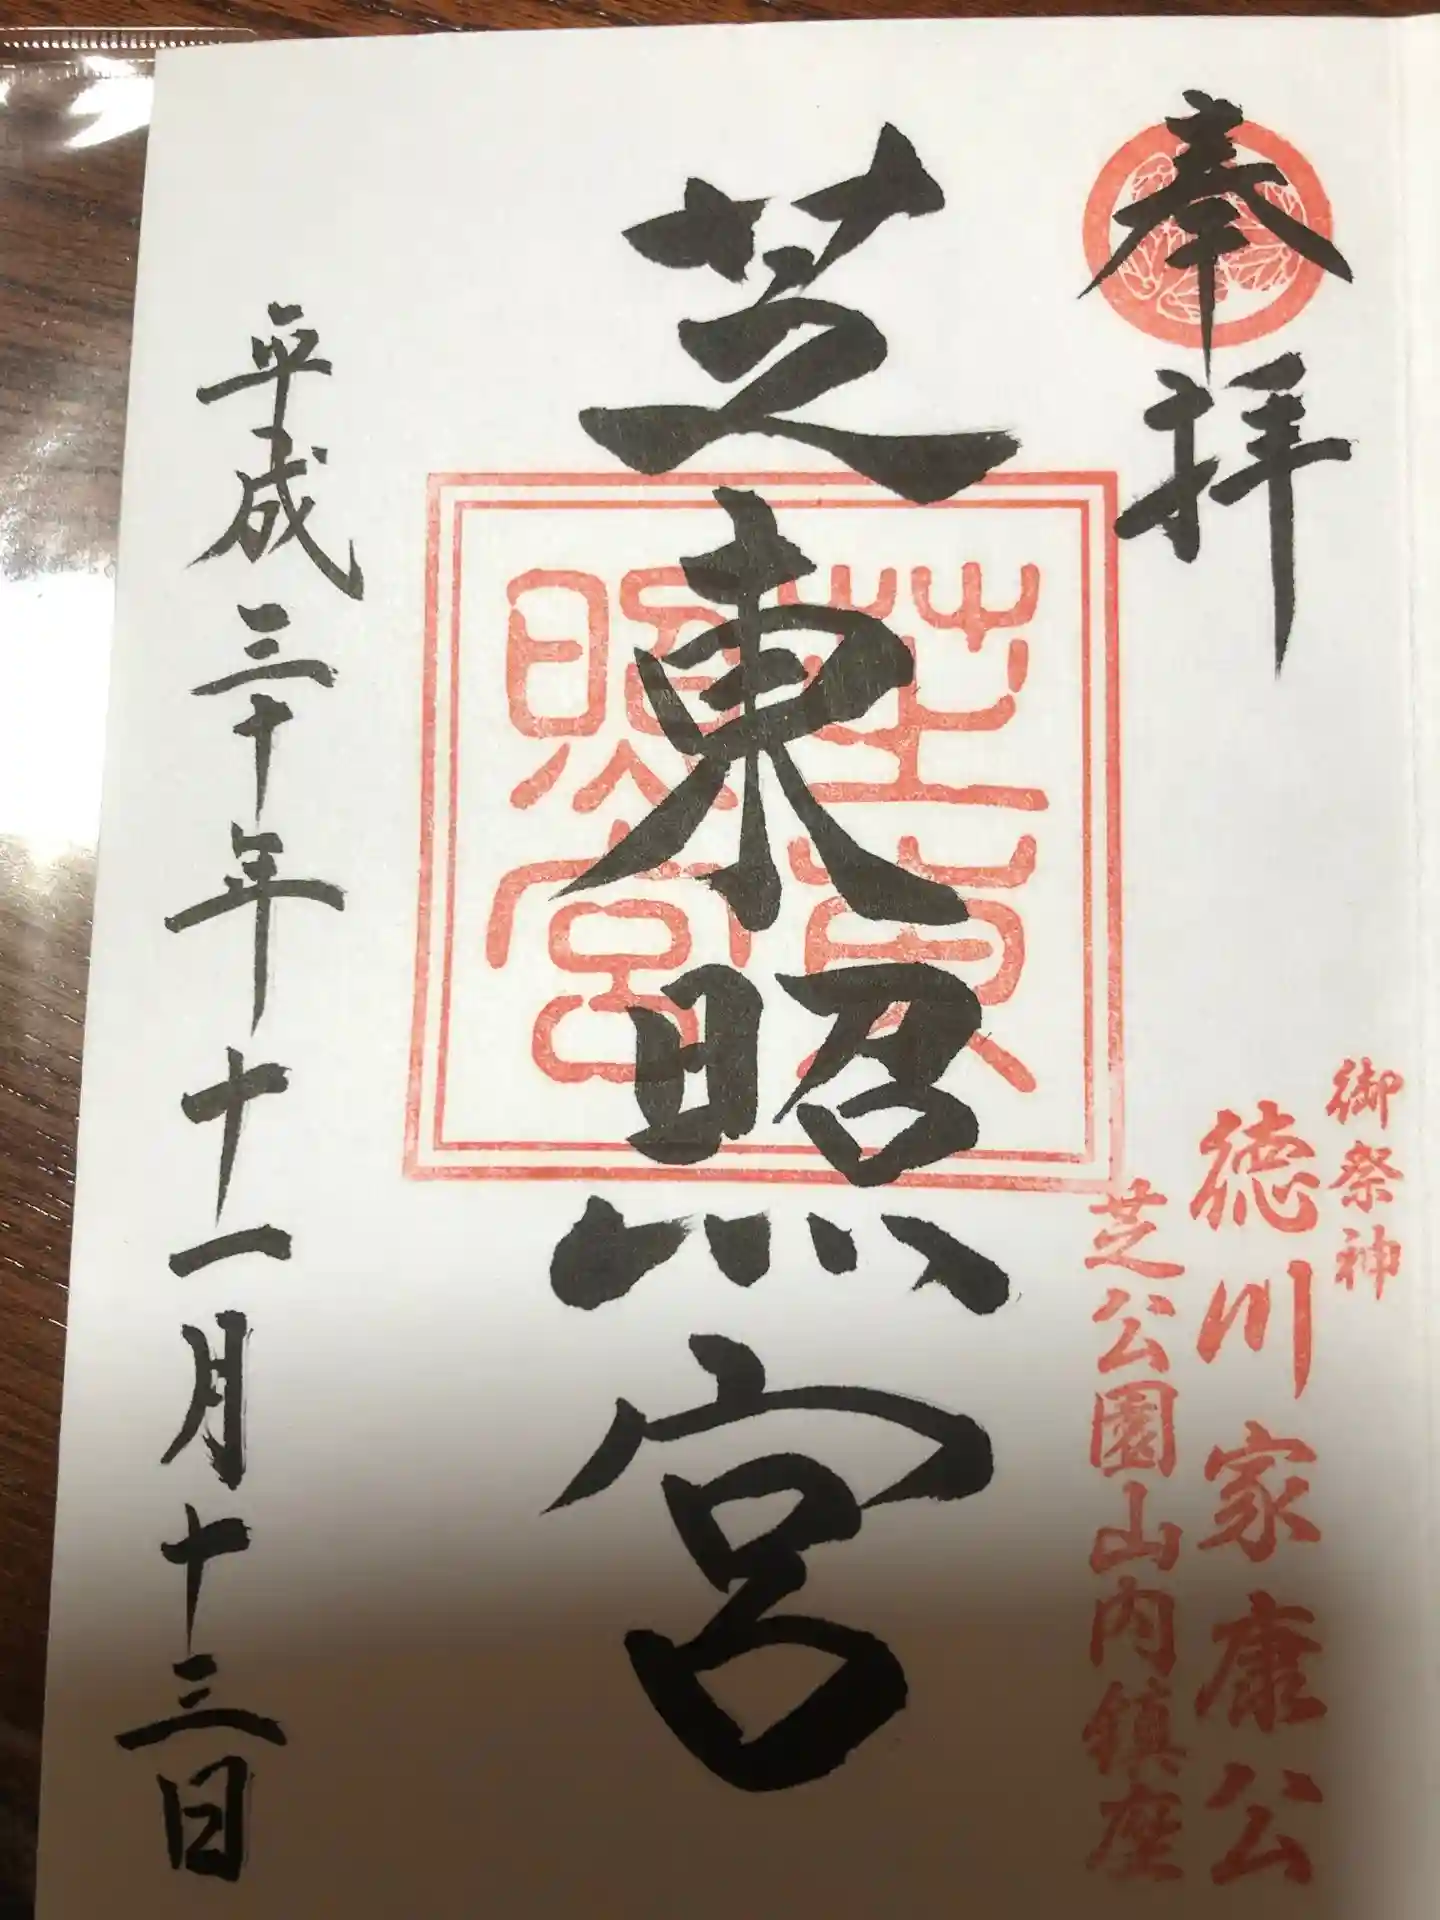 奉拝
御祭神
徳川家康公
芝公園山内鎮座
芝東照宮
芝東
照宮
平成三十年十一月十三日